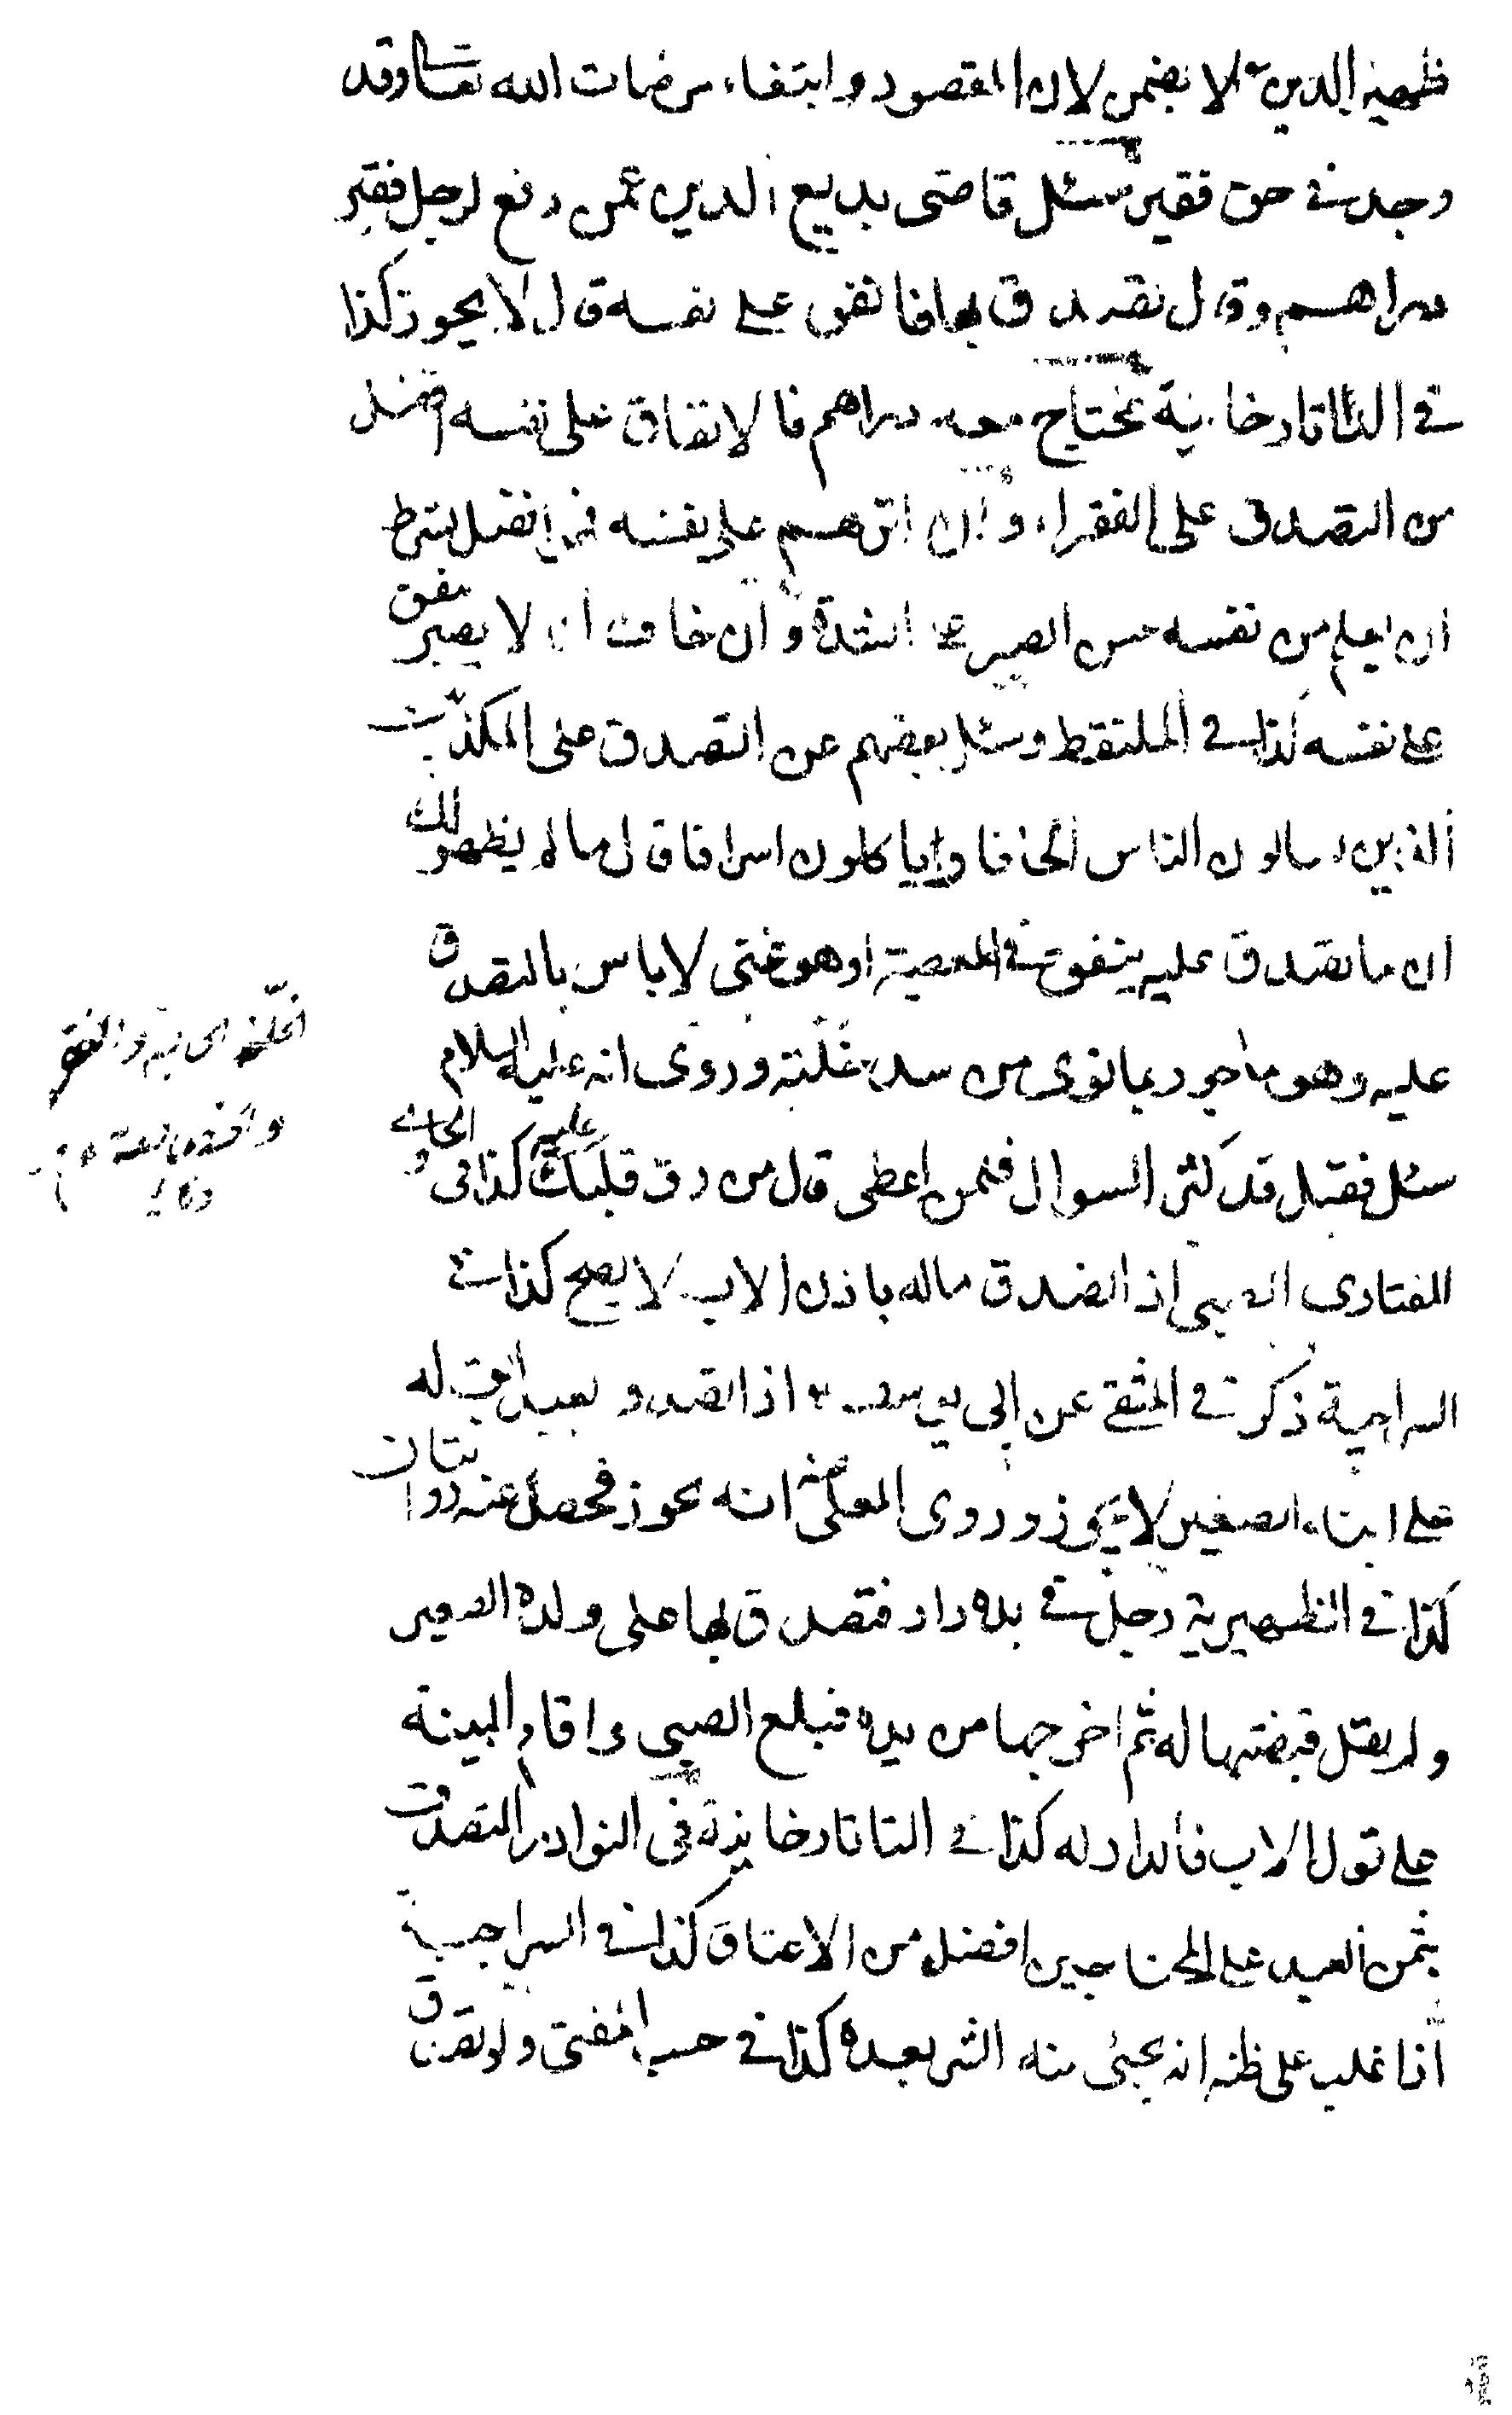 ظهير الدين لا يضمن لان المقصود وابتغاء مرضات الله تعالى وقد
وجد في حق فقير سئل قاضى بديع الدين عمن دفع لرجل فقير
دراهم وقال تصدق بها فانفق على نفسه قال لا يجوز كذا
في التاتارخانية محتاج معه دراهم فالانفاق على نفسه افضل
من التصدق على الفقراء وان اثرهم على نفسه فهو افضل بشرط
ان يعلم من نفسه حسن الصبر على الشدة وان خاف ان لا يصبر ينفق
على نفسه كذا في الملتقط وسئل بعضهم عن التصدق على المكذبين
الذين يسالون الناس الحافا ويأكلون اسرافا قال ما لم يظهر لك
ان ما تصدق عليه ينفق في المعصية او هو غنى لا باس بالتصدق
عليه وهو ماجور بما نوى من سد خلته وروى انه عليه السلام
سئل فقيل قد كثر السوال فلمن اعطى قال من رق قلبك عليه كذا فى الحاوى
الفتاوى الصبى اذا تصدق ماله باذن الاب لا يصح كذا في
السراجية ذكر في المنتقى عن ابى يوسف اذا تصدق بعبد ابق له
على ابنه الصغير لا يجوز وروى المعلى عنه انه يجوز فحصل عنه روايتان
كذا في الظهيرية رجل في يده دار فتصدق بها على ولده الصغير
ولم يقل قبضتها له ثم اخرجها من يده فبلغ الصبى واقام البينة
على قول الاب فالدار له كذا في التاتارخانية فى النوادر التصدق
بثمن العبد على المحتاجين افضل من الاعتاق كذا في السراجية
اذا غلب على ظنه انه يجئ منه الشر بعده كذا في حسب المفتى ولو تصدق